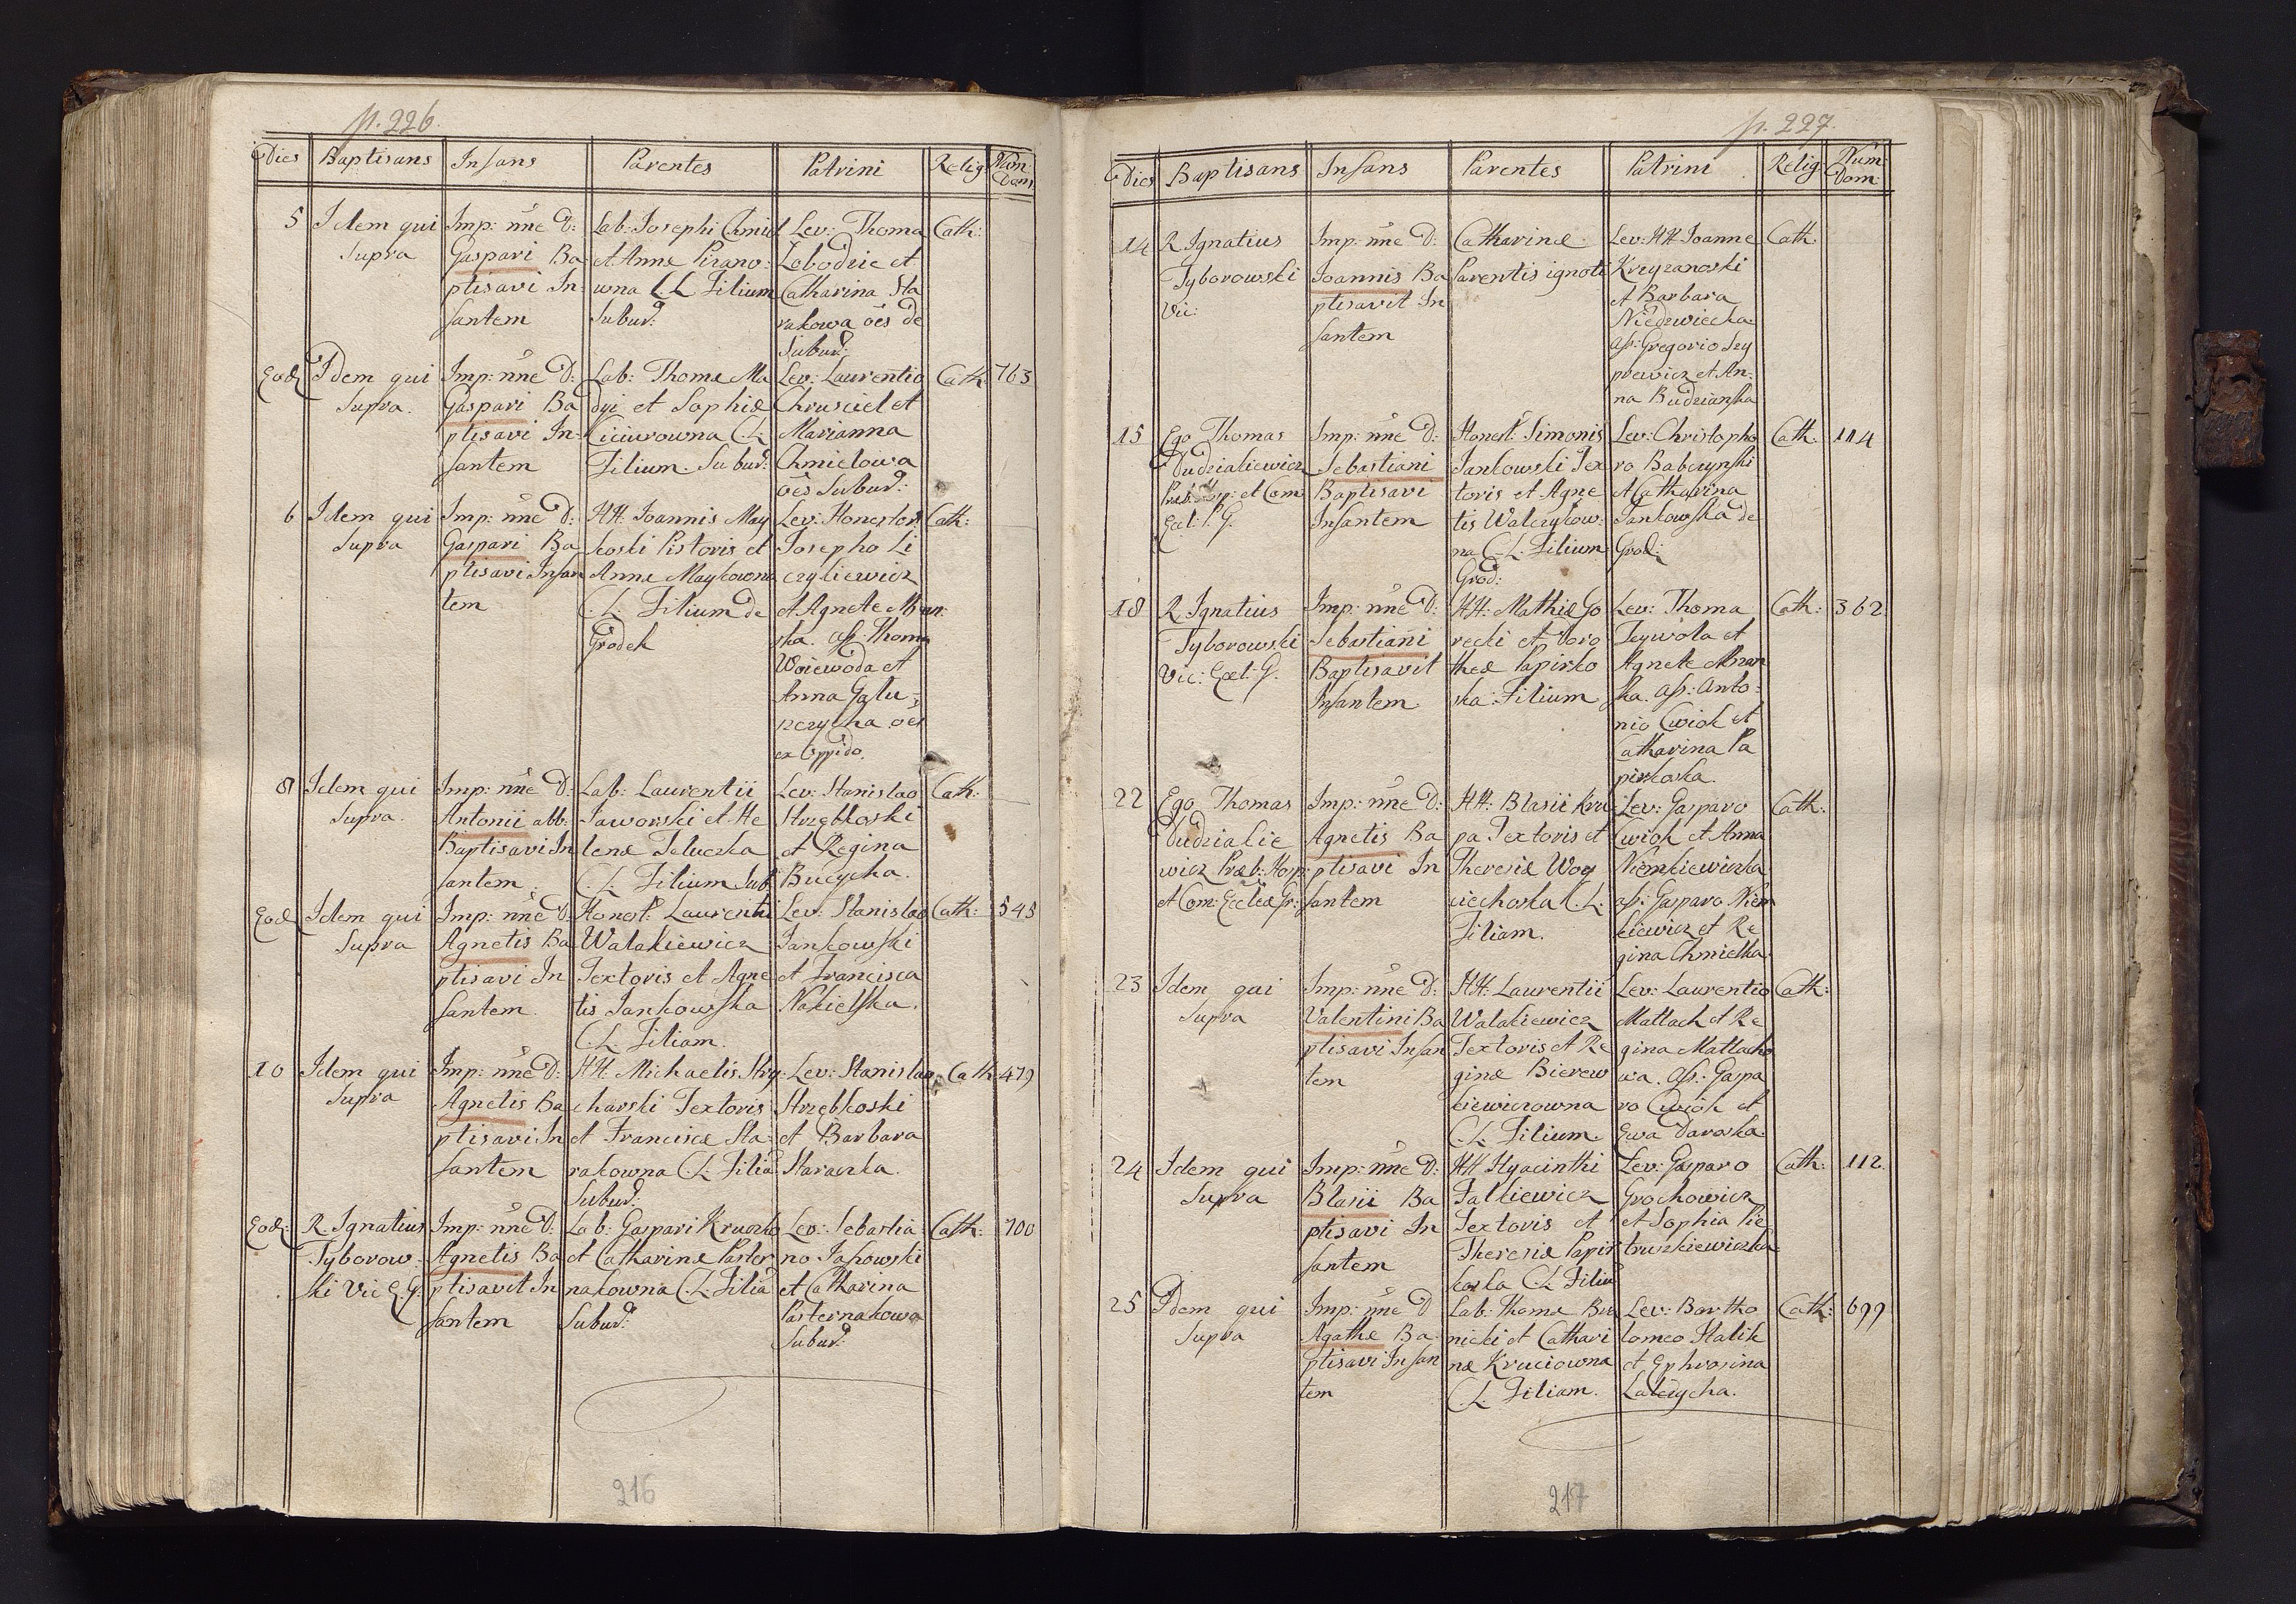 p. 226.
Dies Baptisans Infans Parentes Patrini Relig: Num: Dom:
5
Idem qui
Supra
Imp: nne D:
Gaspari Ba
ptisavi In-
fantem
Lab: Josephi Chmiel
et Anne Pirano-
wna C. L. Filium
Suburb:
Lev: Thoma
Lobodzie et
Catharina Sta
rakowa oes de
Suburb:
Cath:
Eod
Idem qui
Supra.
Imp: nne D:
Gaspari Ba
ptisavi In-
fantem
Lab: Thomæ Ma
dyi et Sophiæ
Kiciurowna C. L.
Filium. Suburb:
Lev: Laurentio
Chrusciel et
Marianna
Chmielowa
oes Suburb:
Cath:
763
6
Idem qui
Supra
Imp: nne D:
Gaspari Ba
ptisavi Infan
tem
HH. Joannis May
koski Pistoris et
Annæ Maykowna
C. L. Filium de
Grodek
Lev: Honestor:
Josepho Li
czykiewicz
et Agnete
ska. ass: Thoma
Woiewoda et
Anna Galu-
szczycha oes
ex Oppido.
Cath:
8
Idem qui
Supra.
Imp: nne D:
Antonii abb:
Baptisavi In
fantem.
Lab: Laurentii
Jaworski et He
lenæ Teluczka
C. L. Filium Sub
Lev: Stanislao
Strzębkoski
et Regina
Bucycha.
Cath:
Eod
Idem qui
Supra
Imp: nne D:
Agnetis Ba
ptisavi In
fantem.
Honest: Laurentii
Walakiewicz
Textoris et Agne
tis Jankowska
C. L. Filiam.
Lev: Stanislao
Jankowski
et Francisca
Nakielska.
Cath:
545
10
Idem qui
Supra
Imp: nne D:
Agnetis Ba
ptisavi In
fantem
HH. Michaelis Stry
charski Textoris
et Franciscæ Sta
rakowna C. L. Filia
Suburb:
Lev: Stanislao
Strzębkoski
et Barbara
Staraczka.
Cath
479
Eod:
R. Ignatius
Tyborow-
ski Vic E. G.
Imp: nne D:
Agnetis Ba
ptisavit In
fantem
Lab: Gaspari Kruszko
et Catharinæ Paster
nakowna C. L. Filia
Suburb:
Lev: Sebastia
no Japowski
et Catharina
Pasternakowa
Suburb:
Cath:
700
216
p. 227.
Dies Baptisans Infans Parentes Patrini Relig: Num: Dom:
14
R Ignatius
Tyborowski
Vic:
Imp: nne D:
Joannis Ba
ptisavit In
fantem
Catharinæ
Parentis ignoti
Lev: HH Joanne
Krzyzanoski
et Barbara
Niedzwiecka
ass: Gregorio Szy
prewicz et An-
na Budzianska
Cath:
15
Ego Thomas
Dudzialiewicz
Præb: Hosp: et Com
Eccl: P. G.
Imp: nne D:
Sebastiani
Baptisavi
Infantem
Honest: Simonis
Jankowski Tex
toris et Agne
tis Walczykow-
na C. L. Filium
Grod:
Lev: Christopho
ro Babczynski
et Catharina
Jankowska de
Grod:
Cath:
114
18
R Ignatius
Tyborowski
Vic: Eccl: G.
Imp: nne D:
Sebastiani
Baptisavit
Infantem
HH: Mathiæ Go
recki et Doro
theæ Papirko
ska: Filium
Lev: Thoma
Trywola et
Agnete Mnzan
ska. ass: Anto-
nio Cwiok et
Catharina Pa
pirkoska.
Cath:
362.
22
Ego Thomas
Dudzialie
wicz Præb: Hosp:
et Com: Ecclæ Gr:
Imp: nne D:
Agnetis Ba
ptisavi In
fantem
HH: Blasii Kru
pa Textoris et
Theresiæ Woy
ciechoska C. L.
Filiam.
Lev: Gasparo
Cwiok et Anna
Niemkiewiczka
ass: Gasparo Niem
kiewicz et Re
gina Chmielka.
Cath:
23
Idem qui
Supra
Imp: nne D:
Valentini Ba
ptisavi Infan
tem
HH: Laurentii
Walakiewicz
Textoris et Re
ginæ Bierew
kiewiczowna
C. L. Filium.
Lev: Laurentio
Matlach et Re
gina Matlacho
wa. ass: Gaspa
ro Cwiok et
Ewa Daroska.
Cath:
24
Idem qui
Supra
Imp: nne D:
Blasii Ba
ptisavi In
fantem
HH Hyacinthi
Falkiewicz
Textoris et
Theresiæ Papir
koska C. L. Filiu
Lev: Gasparo
Grochowicz
et Sophia Pie
truszkiewiczka
Cath:
112.
25
Idem qui
Supra
Imp: nne D
Agathæ Ba
ptisavi Infan
tem
Lab: Thomæ Bu
nicki et Cathari
næ Kruciowna
C. L. Filiam.
Lev: Bartho
lomeo Halik
et Ephrosina
Labdycha.
Cath:
699
217